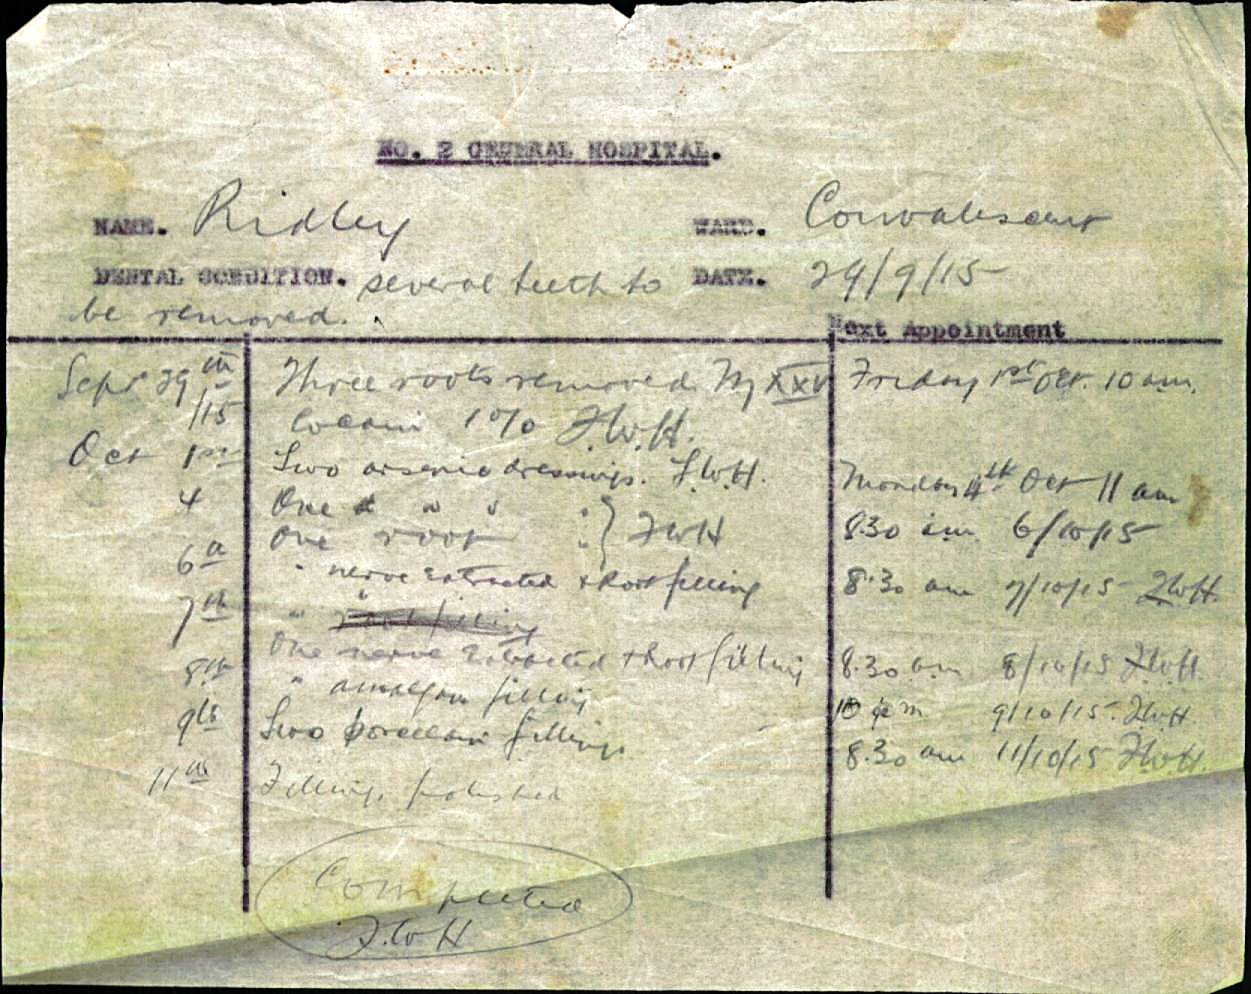 NO. 2 GENERAL HOSPITAL.
NAME. Ridley WARD. Convalescent
DENTAL CONDITION. several teeth to DATE. 29/9/15
be removed.
Next Appointment
Sept 29th Three roots removed. My XXV Friday 1st Oct. 10 am.
/15 Cocain 1% F.W.H.
Oct 1st Two arsenic dressings. F.W.H. Monday 4th Oct 11 am
4 One " " " F.W.H 8.30 am 6/10/15
One root "
6th " nerve extracted + Root filling 8.30 am 7/10/15 F.W.H.
7th " Root filling
One nerve Extracted + Root filling 8.30 am 8/10/15 F.W.H.
8th " amalgam filling 9/10/15. F.W.H.
9th Two porcelain fillings 8.30 am 11/10/15 F.W.H.
11th Fillings polished
Completed
F.W H